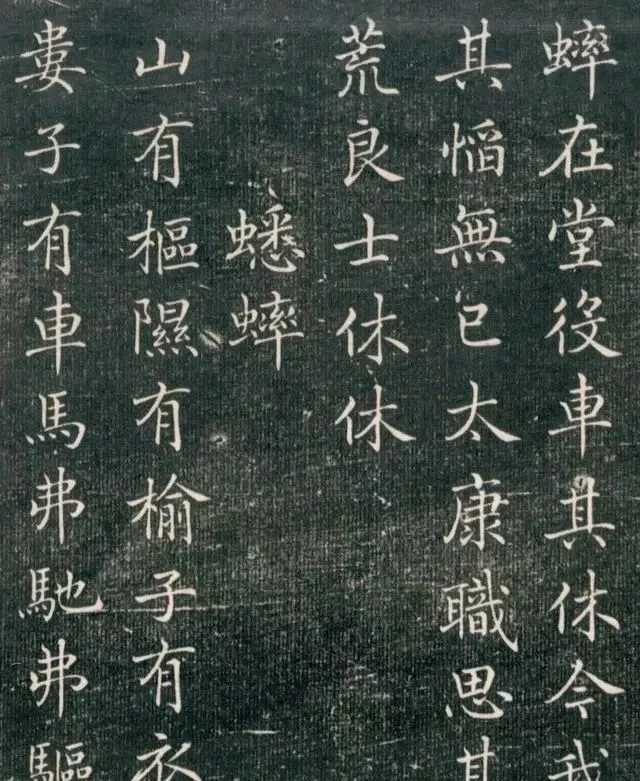 蟀在堂役車其休今我
其慆無已太康職思其
荒良士休休
蟋蟀
山有樞隰有榆子有衣
婁子有車馬弗馳弗驅